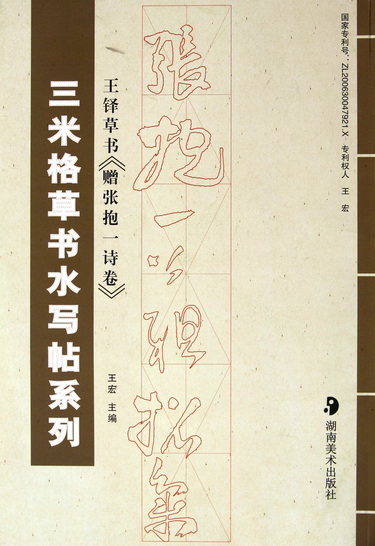 国家专利号：ZL200630047921.X 专利权人 王 宏
湖南美术出版社
張抱一以
氣
王铎草书《赠张抱一诗卷》
王宏 主编
三米格草书水写帖系列